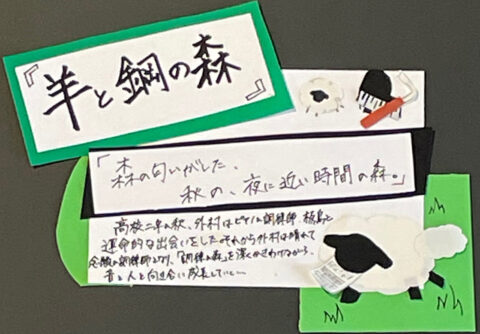 『羊と鋼の森』
「森の匂いがした、
秋の、夜に近い時間の森。」
高校二年の秋、外村はピアノ調律師 板鳥と
運命的な出会いをした。それから外村は晴れて
念願の調律師となり、「調律の森」を深くかきわけながら、
音と人と向き合い成長していく…